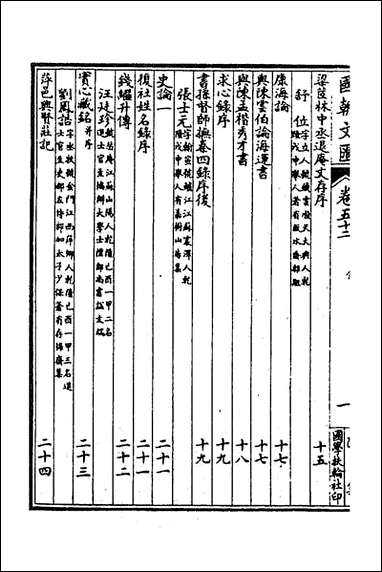 國朝文匯 卷五十二 一 國學扶輪社印
梁茝林中丞退庵文存序 十五
舒位 字立人號鐵雲直隸大興人乾隆戊申舉人著有瓶水齋
康海論 十七
與陳雲伯論海運書 十七
與陳孟楷秀才書 十八
求心錄序 十九
書孫督師撫秦四錄序後 十九
張士元 字翰宣號鱸江江蘇震澤人乾隆戊申舉人有嘉樹山房集
史論一 二十一
復社姓名錄序 二十一
錢鱸升傳 二十二
汪廷珍 號瑟庵江蘇山陽人乾隆己酉一甲二名進士官至協辦大學士禮部尚書諡文端
實心藏銘 并序 二十三
劉鳳誥 字丞牧號金門江西萍鄉人乾隆己酉一甲三名進士官至吏部左侍郎加太子少保著有存悔齋集
萍邑興賢莊記 二十四